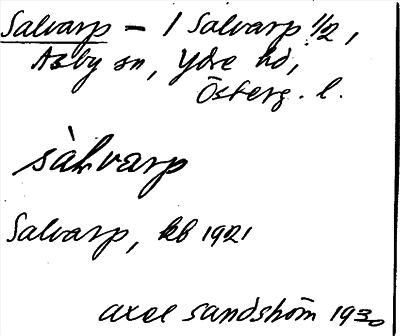 Salvarp – 1 Salvarp 1/2,
Asby sn, Ydre hd,
Österg. l.
sàlvarp
Salvarp, kb 1921
Axel Sandström 1930